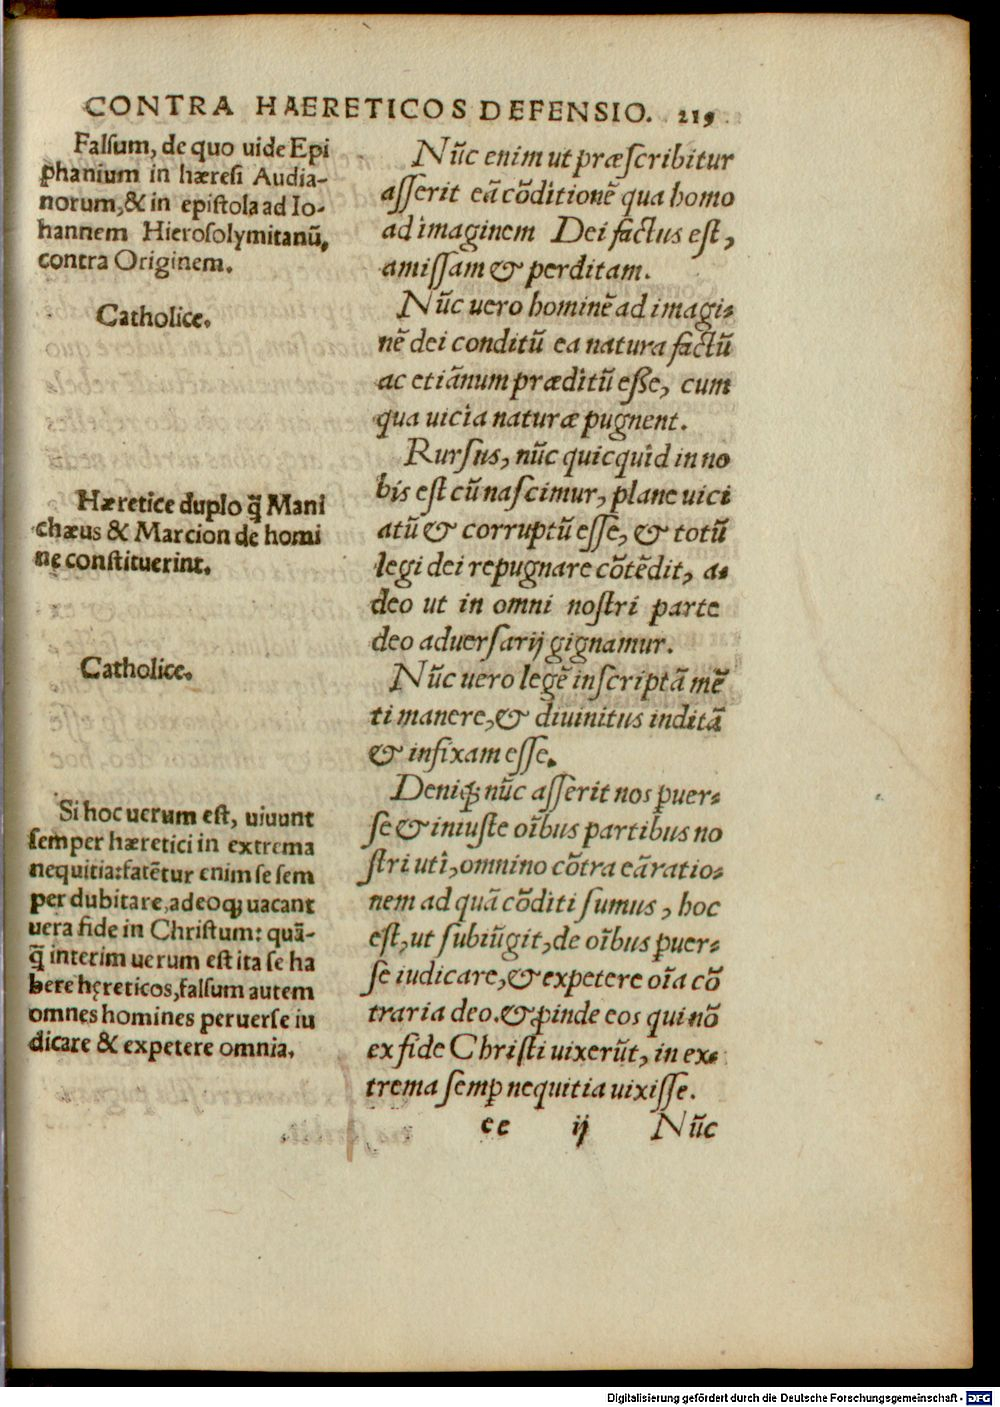 CONTRA HAERETICOS DEFENSIO. 219
Falsum, de quo uide Epi
phanium in hæresi Audia-
norum, & in epistola ad Io-
hannem Hierosolymitanũ,
contra Originem.
Catholice.
Hæretice duplo q̃ Mani
chæus & Marcion de homi
ne constituerint.
Catholice.
Si hoc uerum est, uiuunt
semper hæretici in extrema
nequitia: fatẽtur enim se sem
per dubitare, adeoqꝫ uacant
uera fide in Christum: quã-
q̃ interim uerum est ita se ha
bere hęreticos, falsum autem
omnes homines peruerse iu
dicare & expetere omnia.
Nũc enim ut præscribitur
asserit eã cõditionẽ qua homo
ad imaginem Dei factus est,
amissam & perditam.
Nũc uero hominẽ ad imagi-
nẽ dei conditũ ea natura factũ
ac etiãnum præditũ esse, cum
qua uicia naturæ pugnent.
Rursus, nũc quicquid in no
bis est cũ nascimur, plane uici
atũ & corruptũ esse, & totũ
legi dei repugnare cõtẽdit, a-
deo ut in omni nostri parte
deo aduersarij gignamur.
Nũc uero legẽ inscriptã mẽ
ti manere, & diuinitus inditã
& infixam esse.
Deniqꝫ nũc asserit nos ꝑuer-
se & iniuste oĩbus partibus no
stri uti, omnino cõtra eã ratio-
nem ad quã cõditi sumus, hoc
est, ut subiũgit, de oĩbus ꝑuer-
se iudicare, & expetere oĩa cõ
traria deo. & ꝓinde eos qui nõ
ex fide Christi uixerũt, in ex-
trema semꝑ nequitia uixisse.
ee ij Nũc
Digitalisierung gefördert durch die Deutsche Forschungsgemeinschaft - DFG